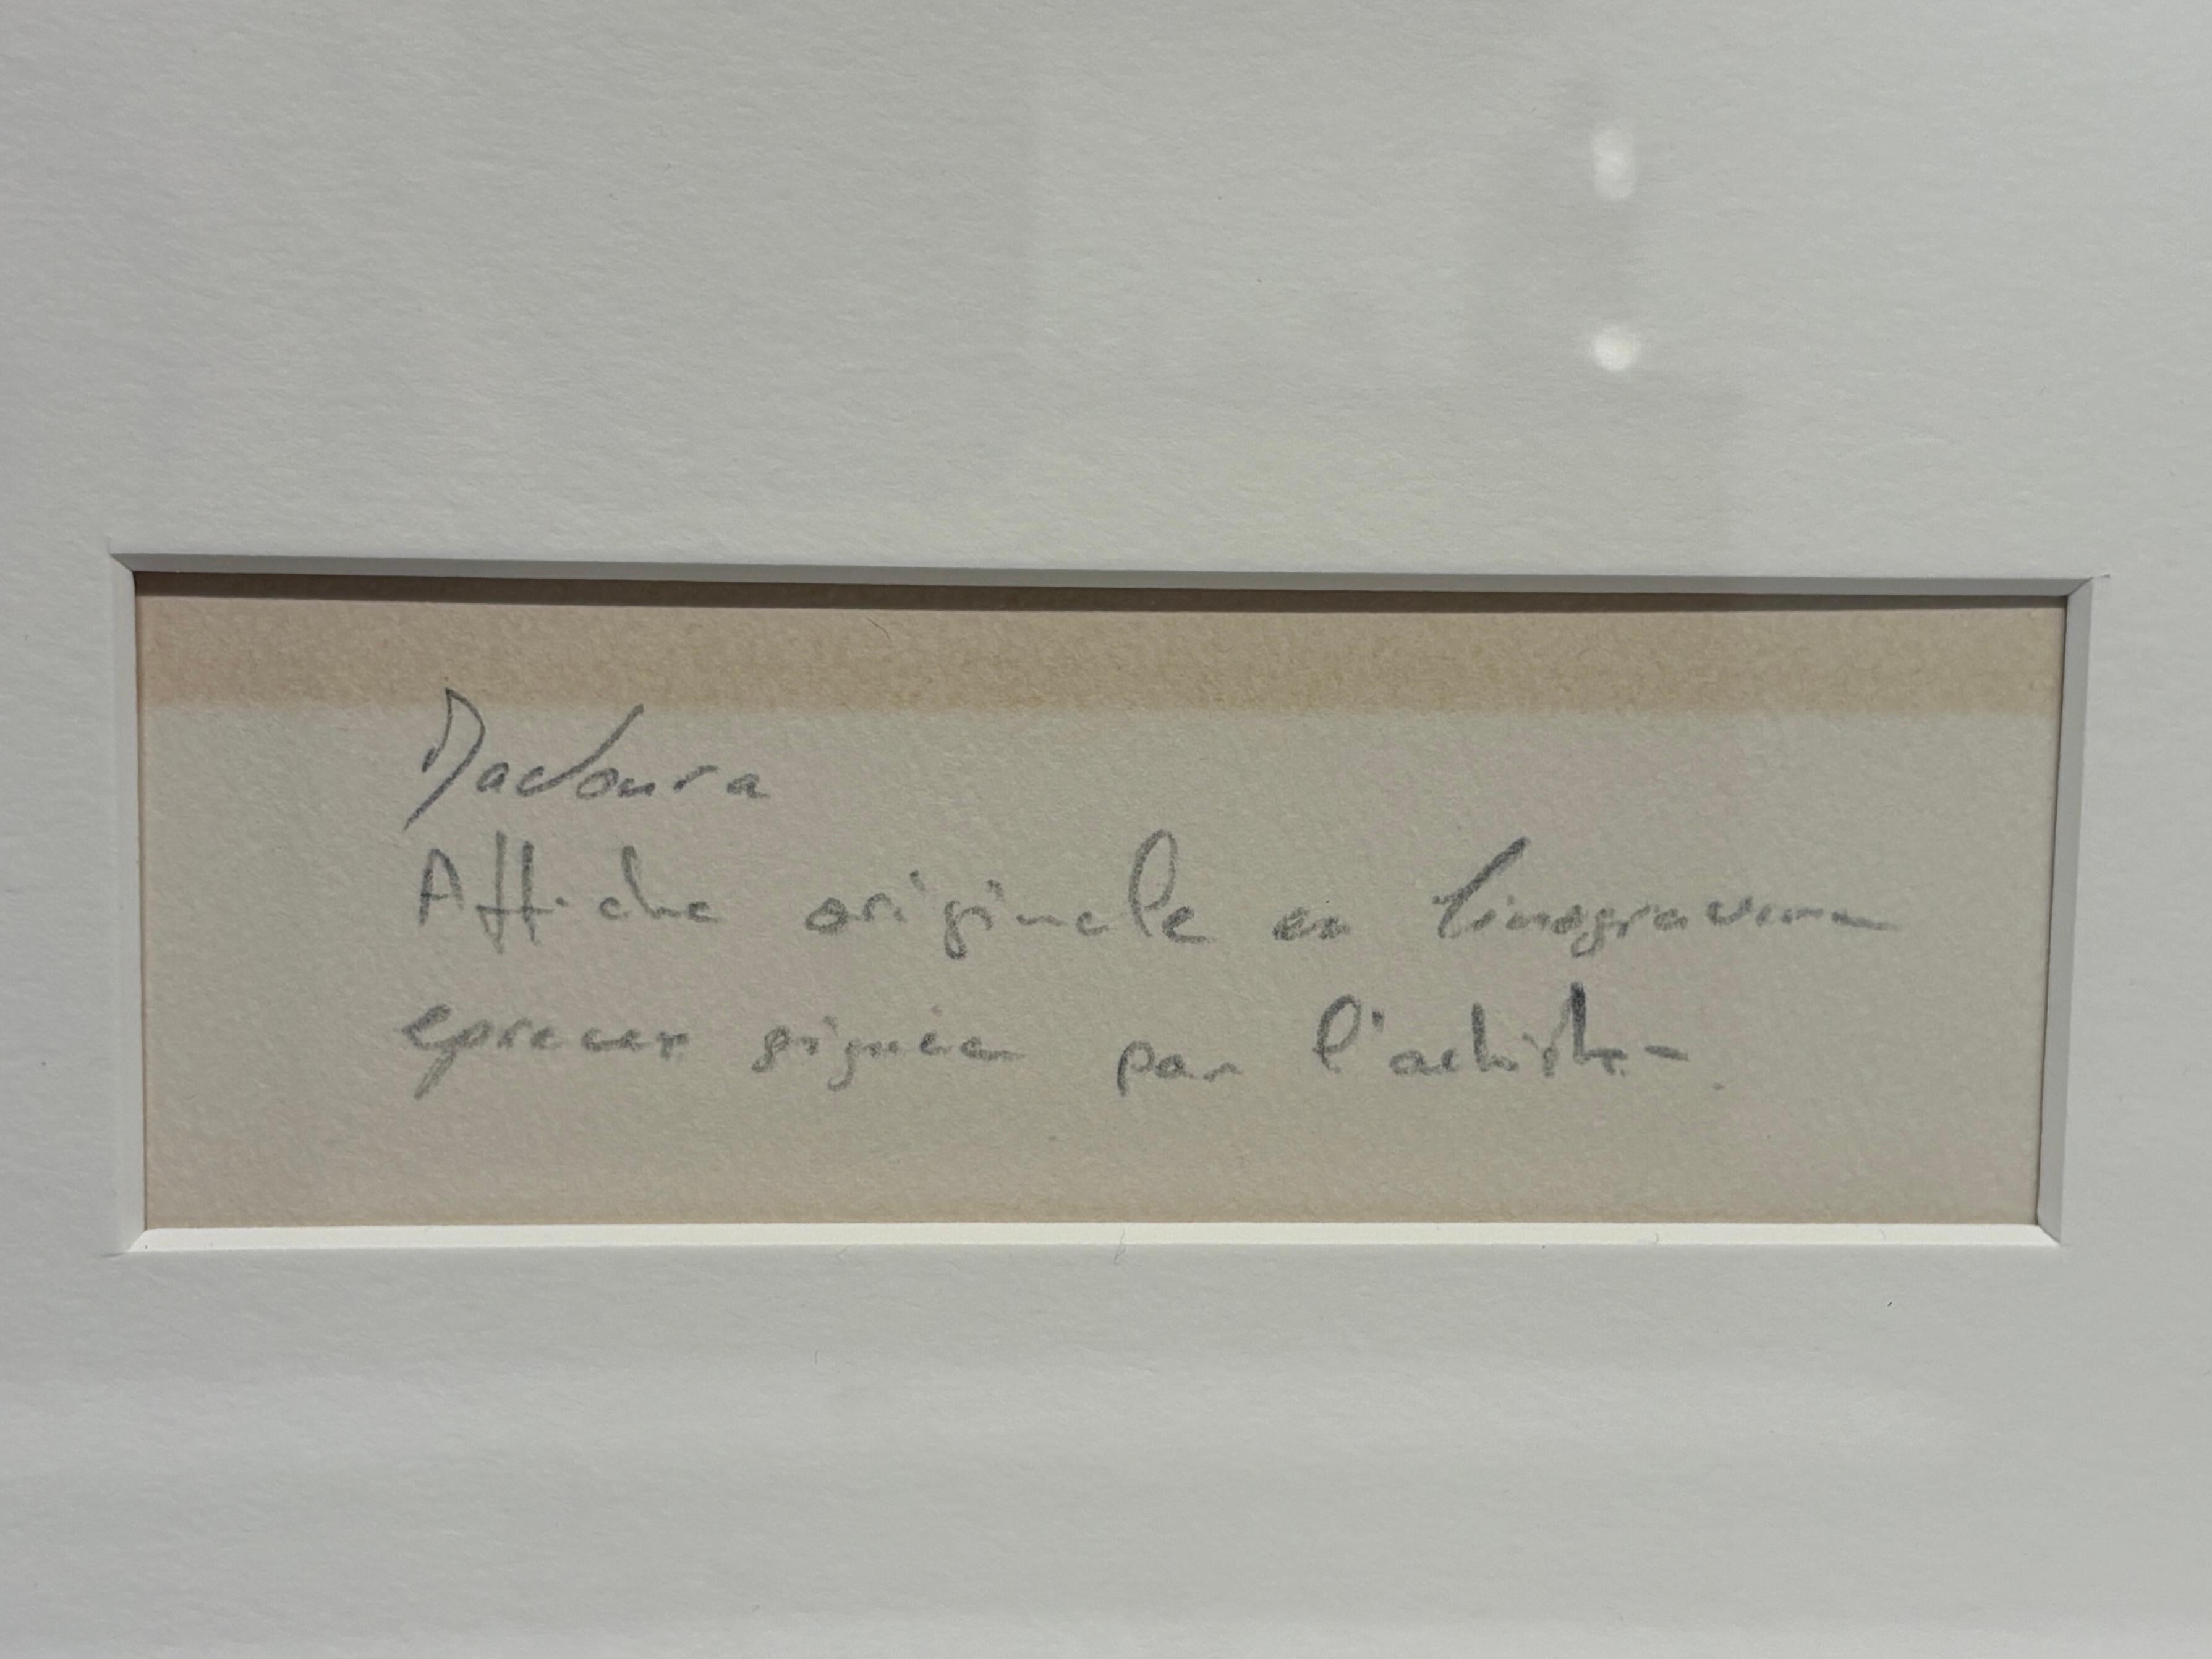 Madoura
Affiche originale en linogravure
épreuve signée par l'artiste.